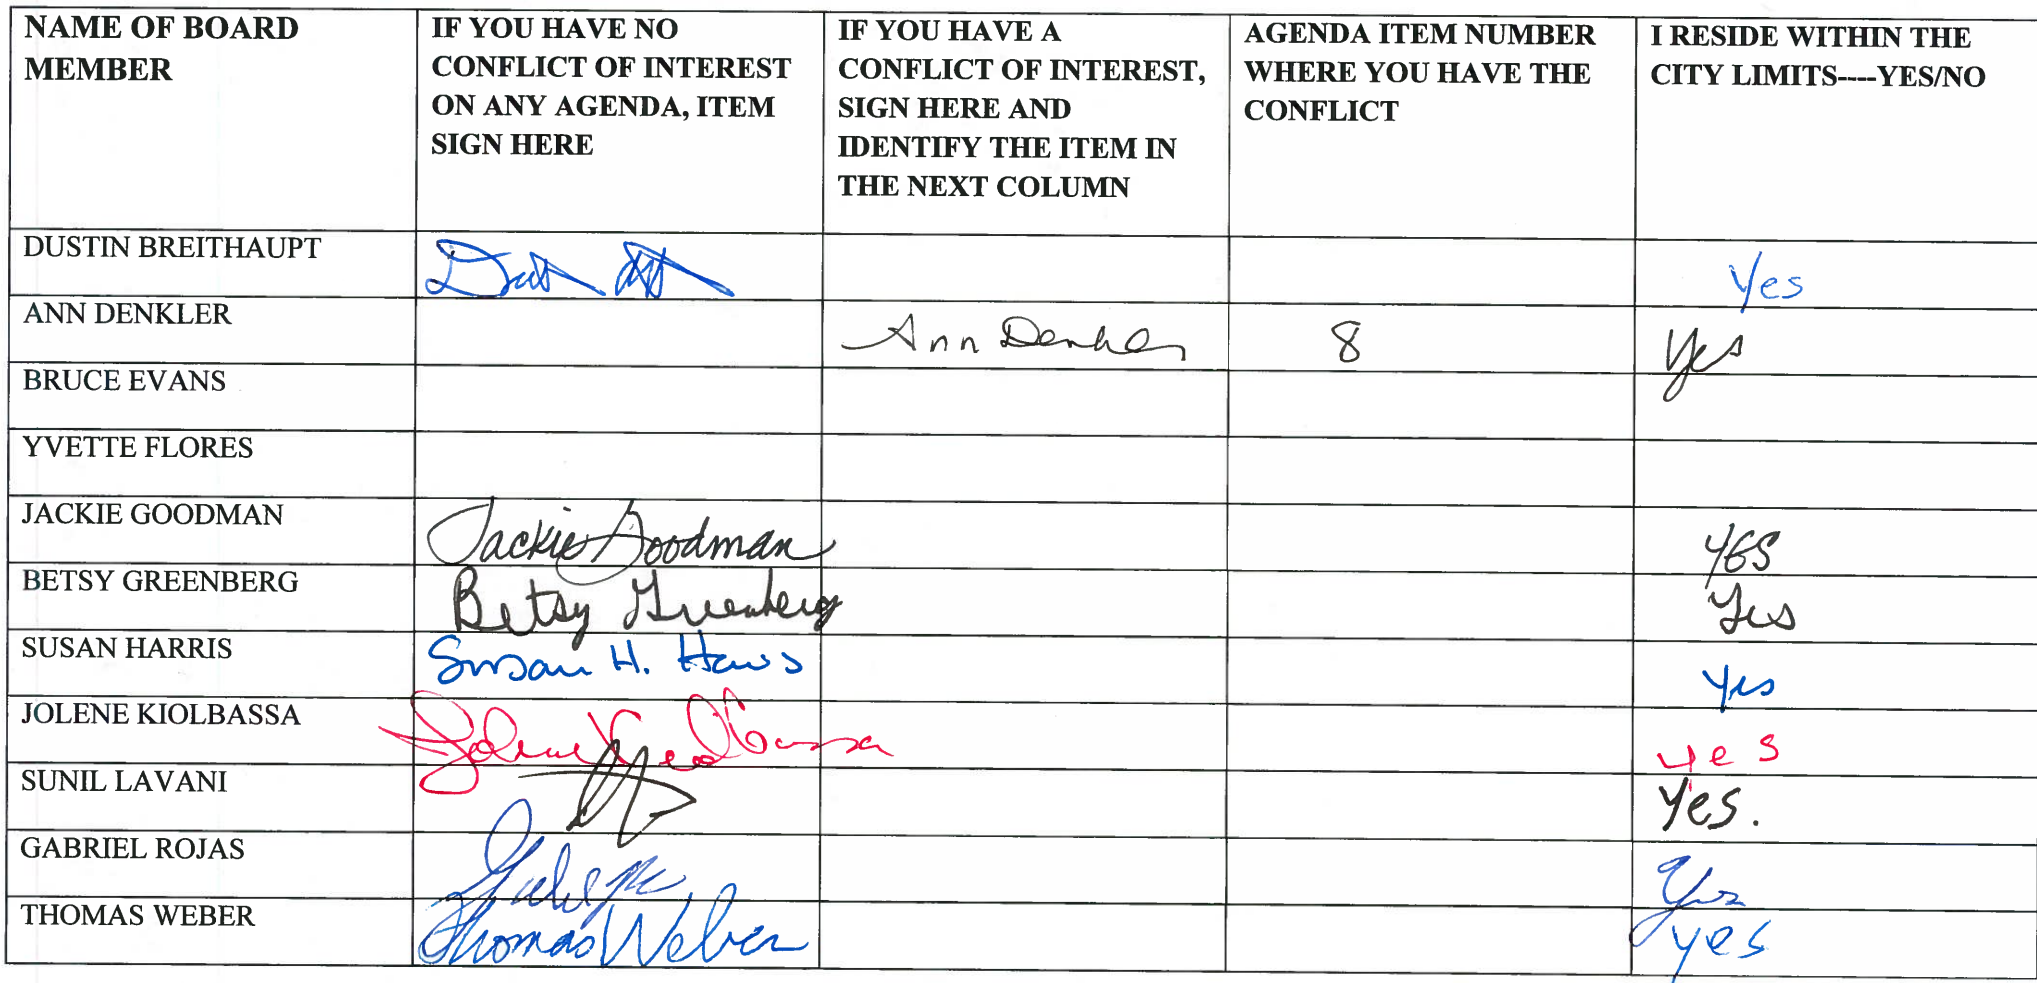 NAME OF BOARD
MEMBER
IF YOU HAVE NO
CONFLICT OF INTEREST
ON ANY AGENDA, ITEM
SIGN HERE
IF YOU HAVE A
CONFLICT OF INTEREST,
SIGN HERE AND
IDENTIFY THE ITEM IN
THE NEXT COLUMN
AGENDA ITEM NUMBER
WHERE YOU HAVE THE
CONFLICT
I RESIDE WITHIN THE
CITY LIMITS----YES/NO
DUSTIN BREITHAUPT
Yes
ANN DENKLER
Ann Denkler
8
Yes
BRUCE EVANS
YVETTE FLORES
JACKIE GOODMAN
Jackie Goodman
YES
BETSY GREENBERG
Betsy Greenberg
Yes
SUSAN HARRIS
Susan H. Harris
Yes
JOLENE KIOLBASSA
Jolene Kiolbassa
yes
SUNIL LAVANI
Yes.
GABRIEL ROJAS
Yes
THOMAS WEBER
Thomas Weber
yes